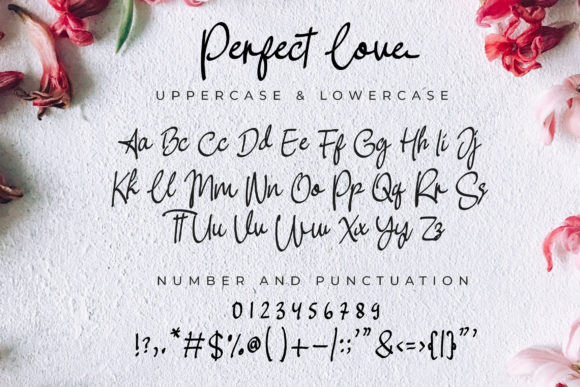 Perfect Love
UPPERCASE & LOWERCASE
Aa Bc Cc Dd Ee Ff Gg Hh Ii Jj
Kk Ll Mm Nn Oo Pp Qq Rr Ss
Tt Uu Vu Ww Xx Yy Zz
NUMBER AND PUNCTUATION
0123456789
!?,.*#$%@()+-/:;'"&<=>{|}"'